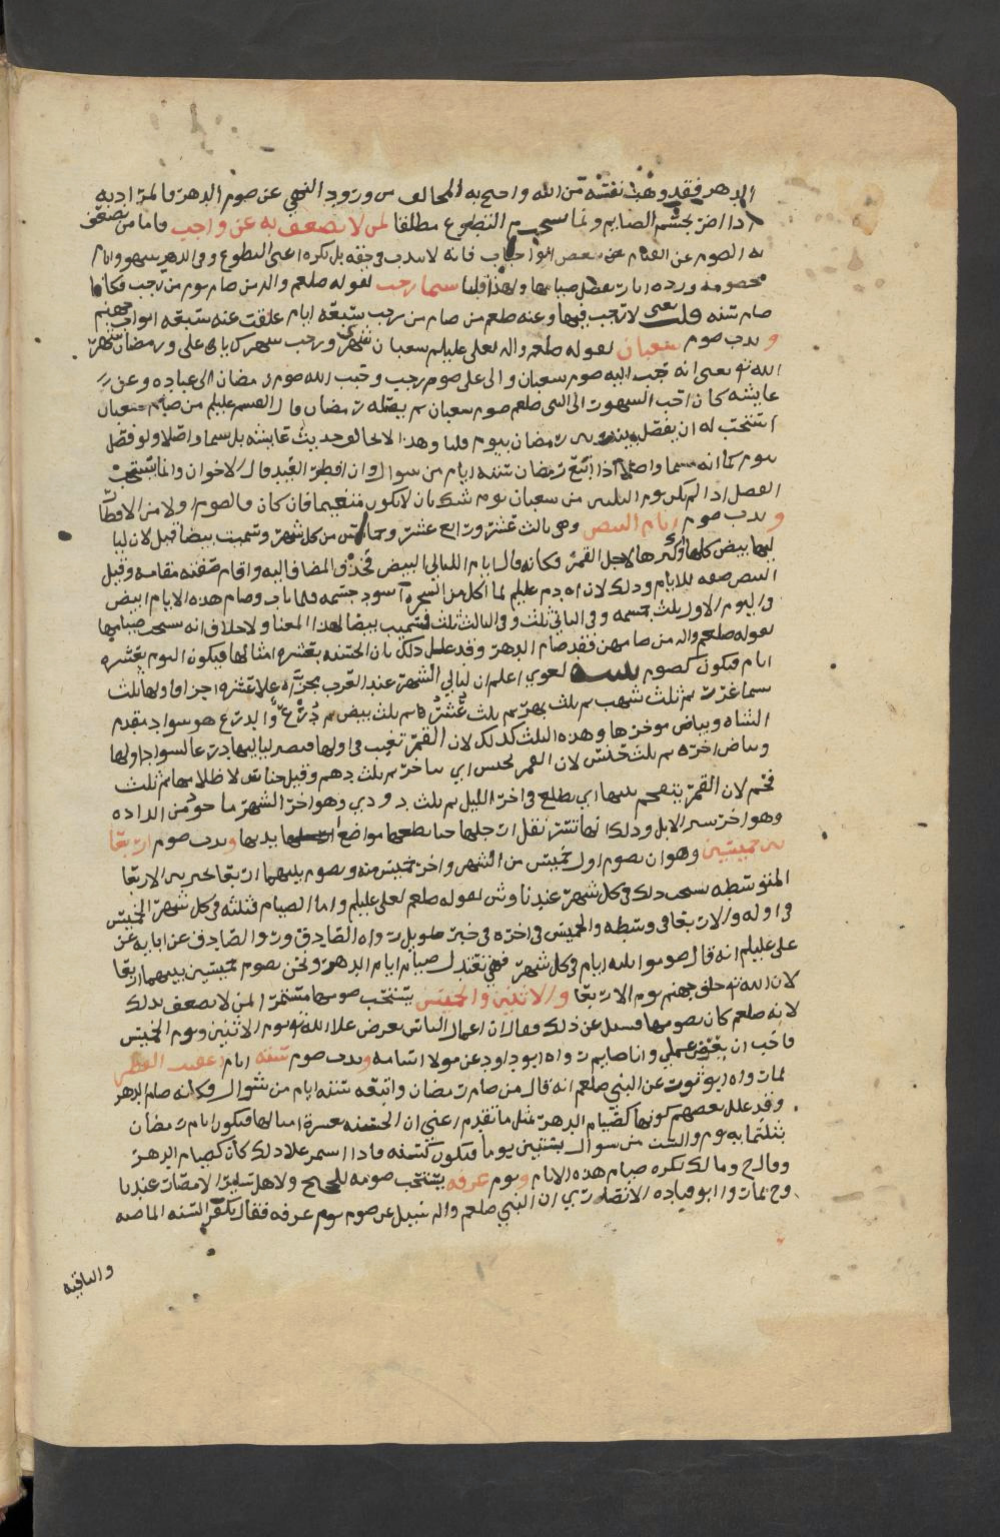 الدهر فقد وهب نفسه من الله واحتج به المخالف من ورود النهي عن صوم الدهر فالمراد به
اذا اضر بجسم الصايم وانما يستحب التطوع مطلقا لمن لا يضعف به عن واجب فاما من يضعف
به الصوم عن القيام ببعض الواجبات فانه لا يندب في حقه بل يكره اعني التطوع وفي الدهر شهور وايام
مخصوصه ورد اثار بفضل صيامها ولهذا قلنا سيما رجب لقوله صلعم واله من صام يوم من رجب فكانما
صام سنه قلت يعني لا رجب فيها وعنه صلعم من صام من رجب سبعه ايام غلقت عنه سبعه ابواب جهنم
وندب صوم شعبان لقوله صلعم واله لعلي عليلم شعبان شهري ورجب شهرك يا علي ورمضان شهر
الله يعني انه حبب اليه صوم شعبان والى علي صوم رجب وحبب الله صوم رمضان الى عباده وعن
عايشه كان احب الشهور الى النبي صلعم صوم شعبان ثم يصله برمضان قال القسم عليلم من صام شعبان
استحب له ان يفصل بينه وبين رمضان بيوم قلنا وهذا لا يخالف حديث عايشه بل سيما واصلا ولو فصل
بيوم كما انه سيما واصلا اذا اتبع رمضان سته ايام من شوال وان افطر العيد قال الاخوان وانما يستحب
الفصل اذا لم يكن يوم الثلثين من شعبان يوم شك بان لا يكون متغيما فان كان فالصوم اولا من الافطار
وندب صوم ايام البيض وهي ثالث عشر ورابع عشر وخامس من كل شهر وسميت بيضا قيل لان ليا
ليها بيض كلها اكثرها لاجل القمر فكانه قال ايام الليالي البيض فحذف المضاف اليه واقام صفته مقامه وقيل
البيض صفه للايام وذلك لان ادم عليلم لما اكل من الشجره اسود جسمه فلما تاب وصام هذه الايام ابيض
في اليوم الاول ثلث جسمه وفي الثاني ثلث وفي الثالث ثلث فسميت بيضا لهذا المعنا ولا خلاف انه يستحب صيامها
لقوله صلعم واله من صامهن فقد صام الدهر وقد علل ذلك بان الحسنه بعشره امثالها فيكون اليوم بعشره
ايام فيكون كصوم لغوي اعلم ان ليالي الشهر عند العرب مجزاه علا عشره اجزا اولها ثلث
سما غرر ثم ثلث شهب ثم ثلث بهر ثم ثلث عشر ثم ثلث بيض ثم درع والدرع هو سواد مقدم
الشاه وبياض موخرها وهذه الثلث كذلك لان القمر تغيب في اولها فيصير لياليها درعا لسواد اولها
وبياض اخره ثم ثلث خنس لان القمر يخنس اي يتاخر ثم ثلث دهم وقيل حنادس لاظلامها ثم ثلث
فحم لان القمر ينفحم فيها اي يطلع في اخر الليل ثم ثلث دودي وهو اخر الشهر ماخوذ من الداده
وهو اخر سير الابل وذلك انها تستر نقل ارجلها حتا يطعها مواضع ايديها وندب صوم اربعا
بين خميسين وهو ان يصوم اول خميس من الشهر واخر خميس منه ويصوم بينهما اربعا خير من الاربعا
المتوسطه يستحب ذلك في كل شهر عندنا وش لقوله صلعم لعلي عليلم واما الصيام فثلثه في كل شهر الخميس
في اوله والاربعا في وسطه والخميس في اخره في خبر طويل رواه الصادق ورو الصادق عن ابايه عن
علي عليلم انه قال صوموا ثلثه ايام في كل شهر فهي تعدل صيام ايام الدهر ونحن نصوم خميسين بينهما اربعا
لان الله خلق جهنم يوم الاربعا والاثنين والخميس يستحب صومها مستمرا لمن لا يضعف بذلك
لانه صلعم كان يصومها فسيل عن ذلك فقال ان اعمال الناس تعرض علا الله يوم الاثنين ويوم الخميس
فاحب ان يعرض عملي وانا صايم رواه ابو داود عن مولا اسامه وندب صوم سته ايام عقيب الفطر
لما رواه ابو ايوب عن النبي صلعم انه قال من صام رمضان واتبعه سته ايام من شوال فكانه صام الدهر
وقد علل بعضهم كونها كصيام الدهر بمثل ما تقدم اعني ان الحسنه بعشره امثالها فيكون ايام رمضان
بثلثمايه يوم والست من شوال بستين يوما فيكون كسنه فاذا استمر علا ذلك كان كصيام الدهر
وقال ح ومالك يكره صيام هذه الايام ويوم عرفه يستحب صومه للحاج ولاهل ساير الامصار عندنا
وح لما روا ابو قتاده الانصاري ان النبي صلعم واله سيل عن صوم يوم عرفه فقال يكفر السنه الماضيه
والباقيه